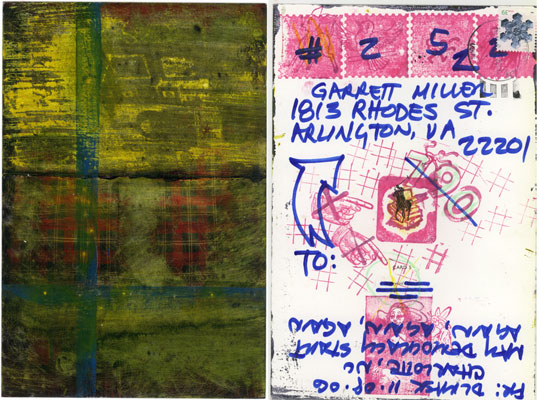 # 2 5 2
GARRETT MILLER
1813 RHODES ST.
ARLINGTON, VA
22201
TO:
FR: 11.09.06
CHARLOTTE, NC
MAY DEMOCRACY START
AGAIN, AGAIN, AGAIN